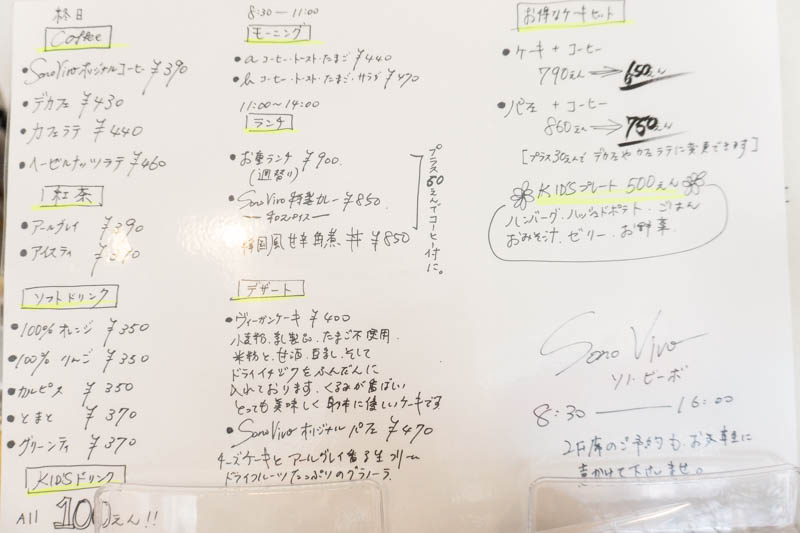 終日
Coffee
• Sono Vivo オリジナルコーヒー ¥390
• デカフェ ¥430
• カフェラテ ¥440
• ヘーゼルナッツラテ ¥460
紅茶
• アールグレイ ¥390
• アイスティ ¥
ソフトドリンク
• 100% オレンジ ¥350
• 100% りんご ¥350
• カルピス ¥350
• とまと ¥370
• グリーンティ ¥370
KID'S ドリンク
All 100えん!!
8:30 — 11:00
モーニング
• a コーヒー・トースト・たまご ¥440
• b コーヒー・トースト・たまご・サラダ ¥470
11:00~14:00
ランチ
• お重ランチ ¥900
(週替り)
• Sono Vivo 特製カレー ¥850
韓国風甘辛角煮丼 ¥850
プラス50えんでコーヒー付に。
デザート
• ヴィーガンケーキ ¥400
小麦粉、乳製品、たまご不使用
米粉と、甘酒、豆乳、そして
ドライイチジクをふんだんに
入れております。くるみが香ばしい
とっても美味しく身体に優しいケーキです
• Sono Vivo オリジナルパフェ ¥470
チーズケーキとアールグレイ香る生クリーム
ドライフルーツたっぷりのグラノーラ
お得なケーキセット
• ケーキ + コーヒー
790えん ⇒ 650えん
• パフェ + コーヒー
860えん ⇒ 750えん
[プラス30えんで デカフェやカフェラテに変更できます]
KID'S プレート 500えん
ハンバーグ・ハッシュドポテト・ごはん
おみそ汁、ゼリー、お野菜
Sono Vivo
ソノ・ビーボ
8:30 — 16:00
2F席のご予約も、お気軽に
声かけて下さいませ。